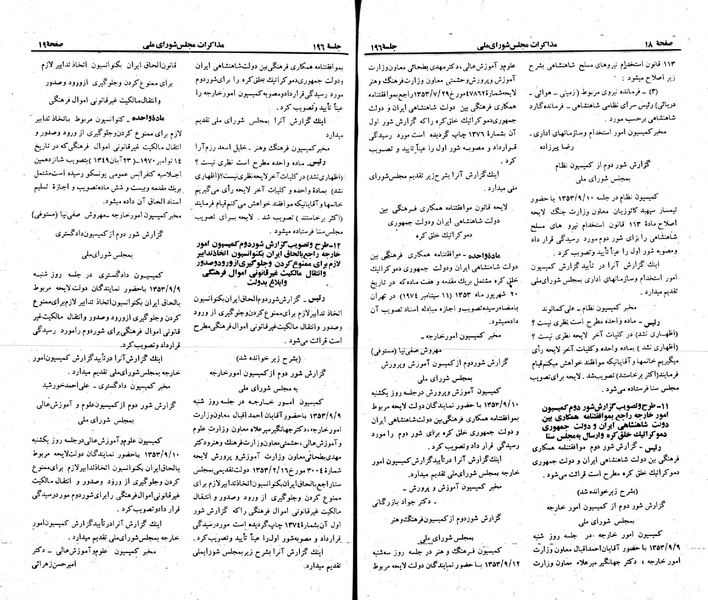 صفحهٔ ۱۸
مذاکرات مجلس شورای ملی
جلسهٔ ۱۹۶
۱۱۳ قانون استخدام نیروهای مسلح شاهنشاهی بشرح
زیر اصلاح میشود :
(۳) – فرمانده نیروی مربوط (زمینی – هوائی –
دریائی) رئیس سرای نظامی شاهنشاهی – فرمانده گارد
شاهنشاهی برحسب مورد .
مخبر کمیسیون امور استخدام و سازمانهای اداری .
رضا پیرزاده
گزارش شور دوم از کمیسیون نظام
به مجلس شورای ملی
کمیسیون نظام در جلسه ۱۳۵۳/۹/۱۰ با حضور
تیمسار سپهبد کاتوزیان معاون وزارت جنگ لایحه
اصلاح مادهٔ ۱۱۳ قانون استخدام نیرو های مسلح
شاهنشاهی را برای شور دوم مورد رسیدگی قرار داد
و گزارش کمیسیون
امور استخدام و سازمانهای اداری مجلس شورای ملی
تقدیم میدارد .
مخبر کمیسیون نظام – علی کمالوند
رئیس – ماده واحده مطرح است نظری نیست ؟
(اظهاری نشد) در کلیات آخر لایحه نظری نیست ؟ (اظهاری
نشد ) بماده واحده و کلیات آخر لایحه رأی
میگیریم خانمها و آقایانیکه موافقند خواهش میکنم قیام
فرمایند (اکثر برخاستند) تصویب شد . لایحه برای تصویب
مجلس سنا فرستاده میشود .
۱۱– طرح و تصویب گزارش شور دوم کمیسیون
امور خارجه راجع بموافقتنامه همکاری بین
دولت شاهنشاهی ایران و دولت جمهوری
دموکراتیک خلق کره و ارسال به مجلس سنا
رئیس – گزارش شور دوم موافقتنامه همکاری
فرهنگی بین دولت شاهنشاهی ایران و دولت جمهوری
دموکراتیک خلق کره مطرح است قرائت میشود .
(بشرح زیر خوانده شد)
گزارش شور دوم از کمیسیون امور خارجه
به مجلس شورای ملی
کمیسیون امور خارجه در جلسه روز شنبه
۱۳۵۳/۹/۹ با حضور آقایان احمد اقبال معاون وزارت
امور خارجه ، دکتر جهانگیر میرعلاء معاون وزارت
علوم و آموزش عالی ، دکتر مهدی بطحائی معاون وزارت
آموزش و پرورش و حشمتی معاون وزارت فرهنگ و هنر
لایحه شماره ۴۷۸۱۲ مورخ ۱۳۵۳/۷/۲۹ راجع بموافقتنامه
همکاری فرهنگی بین دولت شاهنشاهی ایران و دولت
جمهوری دموکراتیک خلق کره را که گزارش شور اول
آن بشمارهٔ ۱۳۷۶ چاپ گردیده است مورد رسیدگی
قرار داد و مصوبه شور اول را عیناً تأیید و تصویب
کرد .
اینک گزارش آنرا بشرح زیر تقدیم مجلس شورای
ملی میدارد .
لایحه قانون موافقتنامه همکاری فرهنگی بین
دولت شاهنشاهی ایران و دولت جمهوری
دموکراتیک خلق کره
ماده واحده – موافقتنامه همکاری فرهنگی بین
دولت شاهنشاهی ایران و دولت جمهوری دموکراتیک
خلق کره مشتمل بر یک مقدمه و هفت ماده که در تاریخ
۲۰ شهریور ماه ۱۳۵۳ (۱۱ سپتامبر ۱۹۷۴) در تهران
بامضاء رسیده تصویب و اجازه مبادله اسناد تصویب آن
داده میشود .
مخبر کمیسیون امور خارجه –
مهروش صفی نیا (مستوفی)
گزارش شور دوم از کمیسیون آموزش و پرورش
به مجلس شورای ملی
کمیسیون آموزش و پرورش در جلسه روز یکشنبه
۱۳۵۳/۹/۱۰ با حضور نمایندگان دولت لایحه مربوط
بموافقتنامه همکاری فرهنگی بین دولت شاهنشاهی ایران
و دولت جمهوری خلق کره را برای شور دوم مورد
رسیدگی قرار داد و تصویب کرد .
اینک گزارش آنرا در تأیید گزارش کمیسیون امور
خارجه به مجلس شورای ملی تقدیم میدارد .
مخبر کمیسیون آموزش و پرورش –
دکتر جواد بازرگانی
گزارش شور دوم از کمیسیون فرهنگ و هنر
به مجلس شورای ملی
کمیسیون فرهنگ و هنر در جلسه روز سه شنبه
۱۳۵۳/۹/۱۲ با حضور نمایندگان دولت لایحه مربوط
جلسهٔ ۱۹۶
مذاکرات مجلس شورای ملی
صفحه ۱۹
بموافقتنامه همکاری فرهنگی بین دولت شاهنشاهی ایران
و دولت جمهوری دموکراتیک خلق کره را برای شور دوم
مورد رسیدگی قرار داد و مصوبه کمیسیون امور خارجه را
عیناً تأیید و تصویب کرد .
اینک گزارش آنرا به مجلس شورای ملی تقدیم
میدارد
مخبر کمیسیون فرهنگ و هنر – خلیل اسعد رزم آرا
رئیس – ماده واحده مطرح است نظری نیست ؟
(اظهاری نشد) در کلیات آخر لایحه نظری نیست؟ (اظهاری
نشد) بماده واحده و کلیات آخر لایحه رأی میگیریم
خانمها و آقایانیکه موافقند خواهش میکنم قیام فرمایند
(اکثر برخاستند ) تصویب شد . لایحه برای تصویب
مجلس سنا فرستاده میشود .
۱۲– طرح و تصویب گزارش شور دوم کمیسیون امور
خارجه راجع بالحاق ایران بکنوانسیون اتخاذ تدابیر
لازم برای ممنوع کردن و جلوگیری از ورود و صدور
و انتقال مالکیت غیرقانونی اموال فرهنگی
و ابلاغ بدولت
رئیس – گزارش شور دوم الحاق ایران بکنوانسیون
اتخاذ تدابیر لازم برای ممنوع کردن و جلوگیری از ورود
و صدور و انتقال مالکیت غیرقانونی اموال فرهنگی مطرح
است قرائت میشود .
(بشرح زیر خوانده شد)
گزارش شور دوم از کمیسیون امور خارجه
به مجلس شورای ملی
کمیسیون امور خارجه در جلسه روز شنبه
۱۳۵۳/۹/۹ با حضور آقایان احمد اقبال معاون وزارت
امور خارجه، دکتر جهانگیر میرعلاء معاون وزارت علوم
و آموزش عالی ، حشمتی معاون وزارت فرهنگ و هنر و دکتر
مهدی بطحائی معاون وزارت آموزش و پرورش لایحه
شمارهٔ ۳۰۰۴ مورخ ۱۳۵۳/۲/۱۶ دولت تقدیمی به مجلس
سنا راجع بالحاق ایران بکنوانسیون اتخاذ تدابیر لازم برای
ممنوع کردن و جلوگیری از ورود و صدور و انتقال
مالکیت غیرقانونی اموال فرهنگی را که گزارش شور
اول آن بشمارهٔ ۱۳۷۴ چاپ گردیده است مورد رسیدگی
قرار داد و مصوبه شور اول را عیناً تأیید و تصویب کرد .
اینک گزارش آنرا بشرح زیر به مجلس شورای ملی
تقدیم میدارد .
قانون الحاق ایران بکنوانسیون اتخاذ تدابیر لازم
برای ممنوع کردن و جلوگیری از ورود و صدور
و انتقال مالکیت غیرقانونی اموال فرهنگی
ماده واحده – کنوانسیون مربوط باتخاذ تدابیر
لازم برای ممنوع کردن و جلوگیری از ورود و صدور و
انتقال مالکیت غیرقانونی اموال فرهنگی که در تاریخ
۱۴ نوامبر ۱۹۷۰ – (۲۳ آبان ۱۳۴۹) بتصویب شانزدهمین
اجلاسیه کنفرانس عمومی یونسکو رسیده است مشتمل
بر یک مقدمه و بیست و شش ماده تصویب و اجازهٔ تسلیم
اسناد الحاق آن داده میشود .
مخبر کمیسیون امور خارجه – مهروش صفی نیا (مستوفی)
گزارش شور دوم از کمیسیون دادگستری
به مجلس شورای ملی
کمیسیون دادگستری در جلسه روز شنبه
۱۳۵۳/۹/۹ با حضور نمایندگان دولت لایحه مربوط
بالحاق ایران بکنوانسیون اتخاذ تدابیر لازم برای ممنوع
کردن و جلوگیری از ورود و صدور و انتقال مالکیت غیر
قانونی اموال فرهنگی را برای شور دوم مورد رسیدگی
قرار داد و تصویب کرد .
اینک گزارش آنرا در تأیید گزارش کمیسیون امور
خارجه به مجلس شورای ملی تقدیم میدارد .
مخبر کمیسیون دادگستری – علی احمد خورشید
گزارش شور دوم از کمیسیون علوم و آموزش عالی
به مجلس شورای ملی
کمیسیون علوم و آموزش عالی در جلسه روز یکشنبه
۱۳۵۳/۹/۱۰ با حضور نمایندگان دولت لایحه مربوط
بالحاق ایران بکنوانسیون اتخاذ تدابیر لازم برای ممنوع
کردن و جلوگیری از ورود و صدور و انتقال مالکیت
غیرقانونی اموال فرهنگی را برای شور دوم مورد رسیدگی
قرار داد و تصویب کرد .
اینک گزارش آنرا در تأیید گزارش کمیسیون امور
خارجه به مجلس شورای ملی تقدیم میدارد .
مخبر کمیسیون علوم و آموزش عالی – دکتر
امیر حسن زهرائی